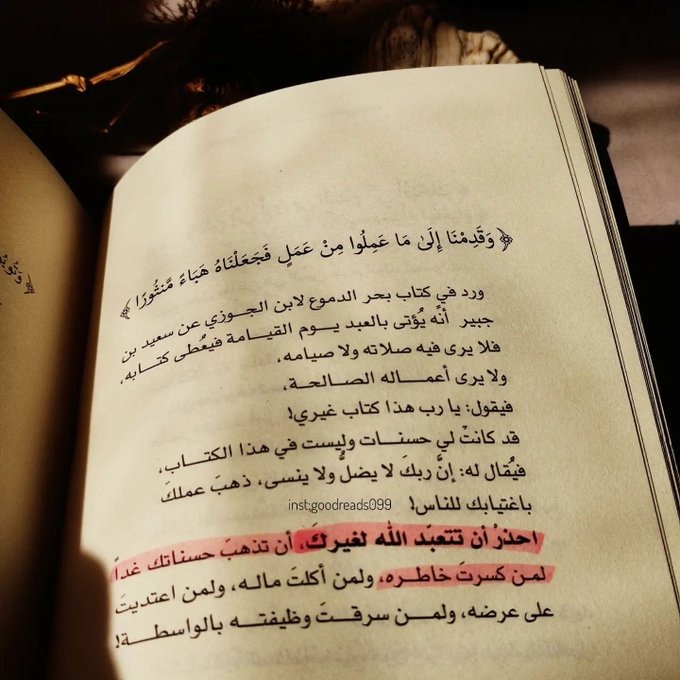 ﴿وَقَدِمْنَا إِلَىٰ مَا عَمِلُوا مِنْ عَمَلٍ فَجَعَلْنَاهُ هَبَاءً مَّنثُورًا﴾
ورد في كتاب بحر الدموع لابن الجوزي عن سعيد بن
جبير أنه يُؤتى بالعبد يوم القيامة فيُعطى كتابه،
فلا يرى فيه صلاته ولا صيامه،
ولا يرى أعماله الصالحة،
فيقول: يا رب هذا كتاب غيري!
قد كانتْ لي حسنات وليست في هذا الكتاب،
فيُقال له: إنَّ ربكَ لا يضلُّ ولا ينسى، ذهبَ عملكَ
باغتيابك للناس!
inst:goodreads099
احذرْ أن تتعبّد الله لغيركَ، أن تذهبَ حسناتك غداً
لمن كسرتَ خاطره، ولمن أكلتَ ماله، ولمن اعتديتَ
على عرضه، ولمن سرقتَ وظيفته بالواسطة!